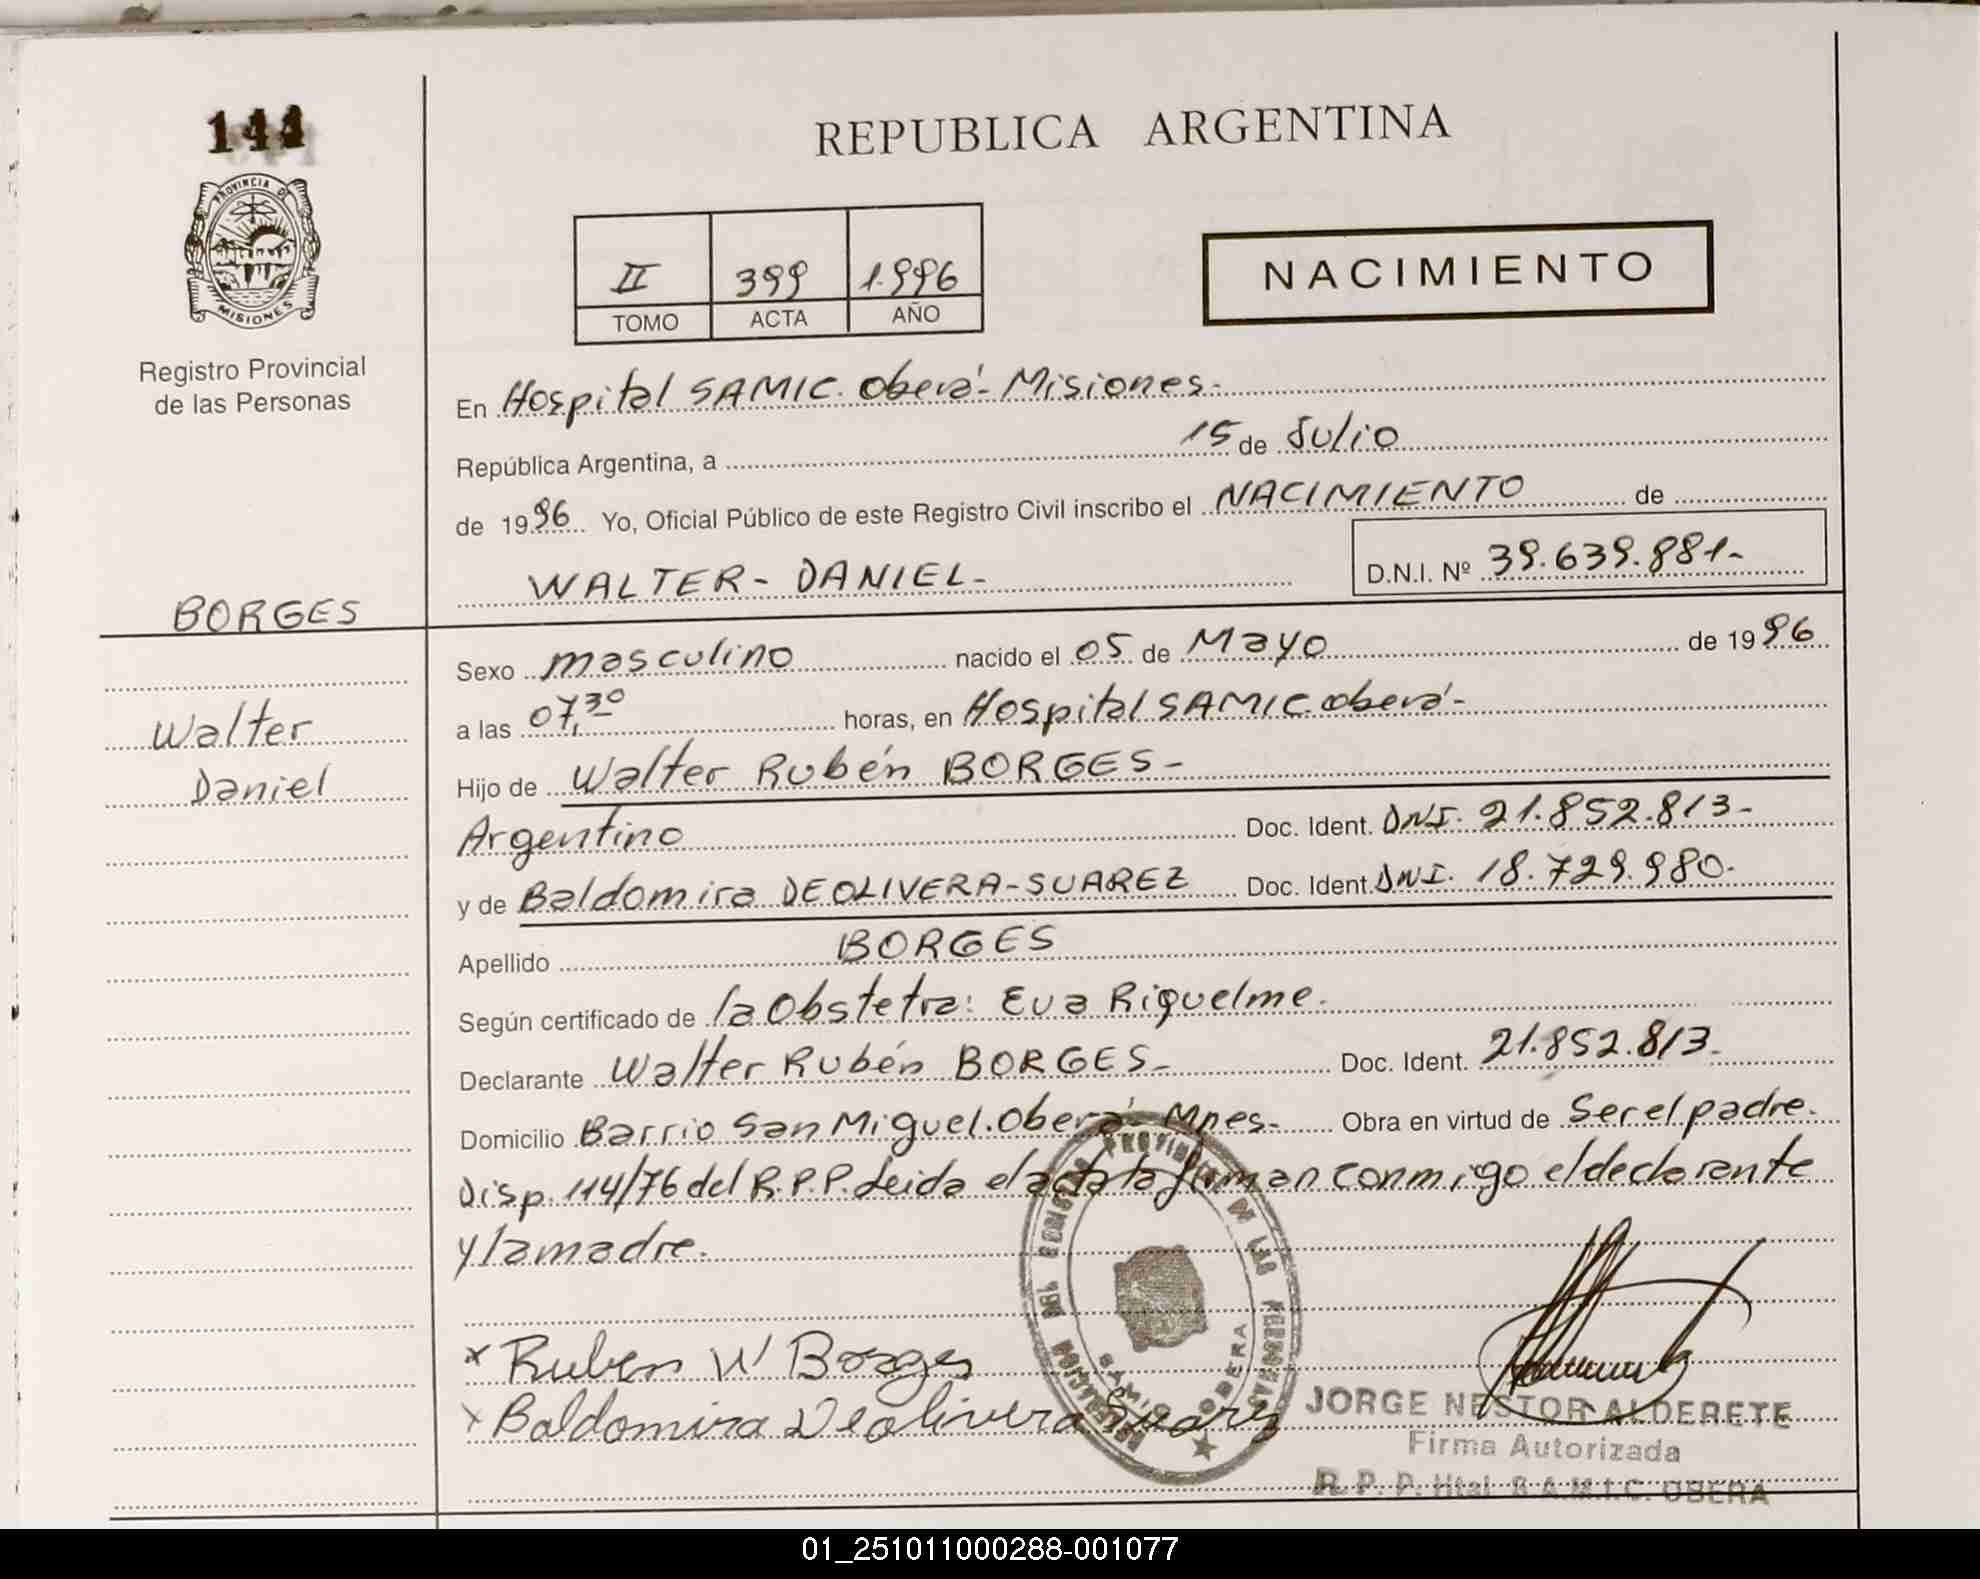 144
PROVINCIA DE
MISIONES
Registro Provincial
de las Personas
REPUBLICA ARGENTINA
II 399 1.996
TOMO ACTA AÑO
NACIMIENTO
En Hospital SAMIC. Oberá- Misiones-
República Argentina, a 15 de Julio
de 1996 Yo, Oficial Público de este Registro Civil inscribo el NACIMIENTO de
WALTER- DANIEL- D.N.I. Nº 39.639.881-
BORGES
Walter
Daniel
Sexo masculino nacido el 05 de Mayo de 1996
a las 07,30 horas, en Hospital SAMIC. oberá-
Hijo de Walter Rubén BORGES-
Argentino Doc. Ident. DNI. 21.852.813-
y de Baldomira DEOLIVERA-SUAREZ Doc. Ident. DNI. 18.729.980-
Apellido BORGES
Según certificado de la Obstetra: Eva Riquelme.
Declarante Walter Rubén BORGES- Doc. Ident. 21.852.813-
Domicilio Barrio San Miguel. Oberá- Mnes- Obra en virtud de Ser el padre.
Disp. 114/76 del R.P.P. Leida el acta la firman conmigo el declarante
y la madre.
x Ruben W Borges
x Baldomira Deolivera Suarez
DELEGACION DEL REGISTRO PROVINCIAL DE LAS PERSONAS
OBERA
JORGE NESTOR ALDERETE
Firma Autorizada
R. P. P. Htal. S.A.M.I.C. OBERA
01_251011000288-001077